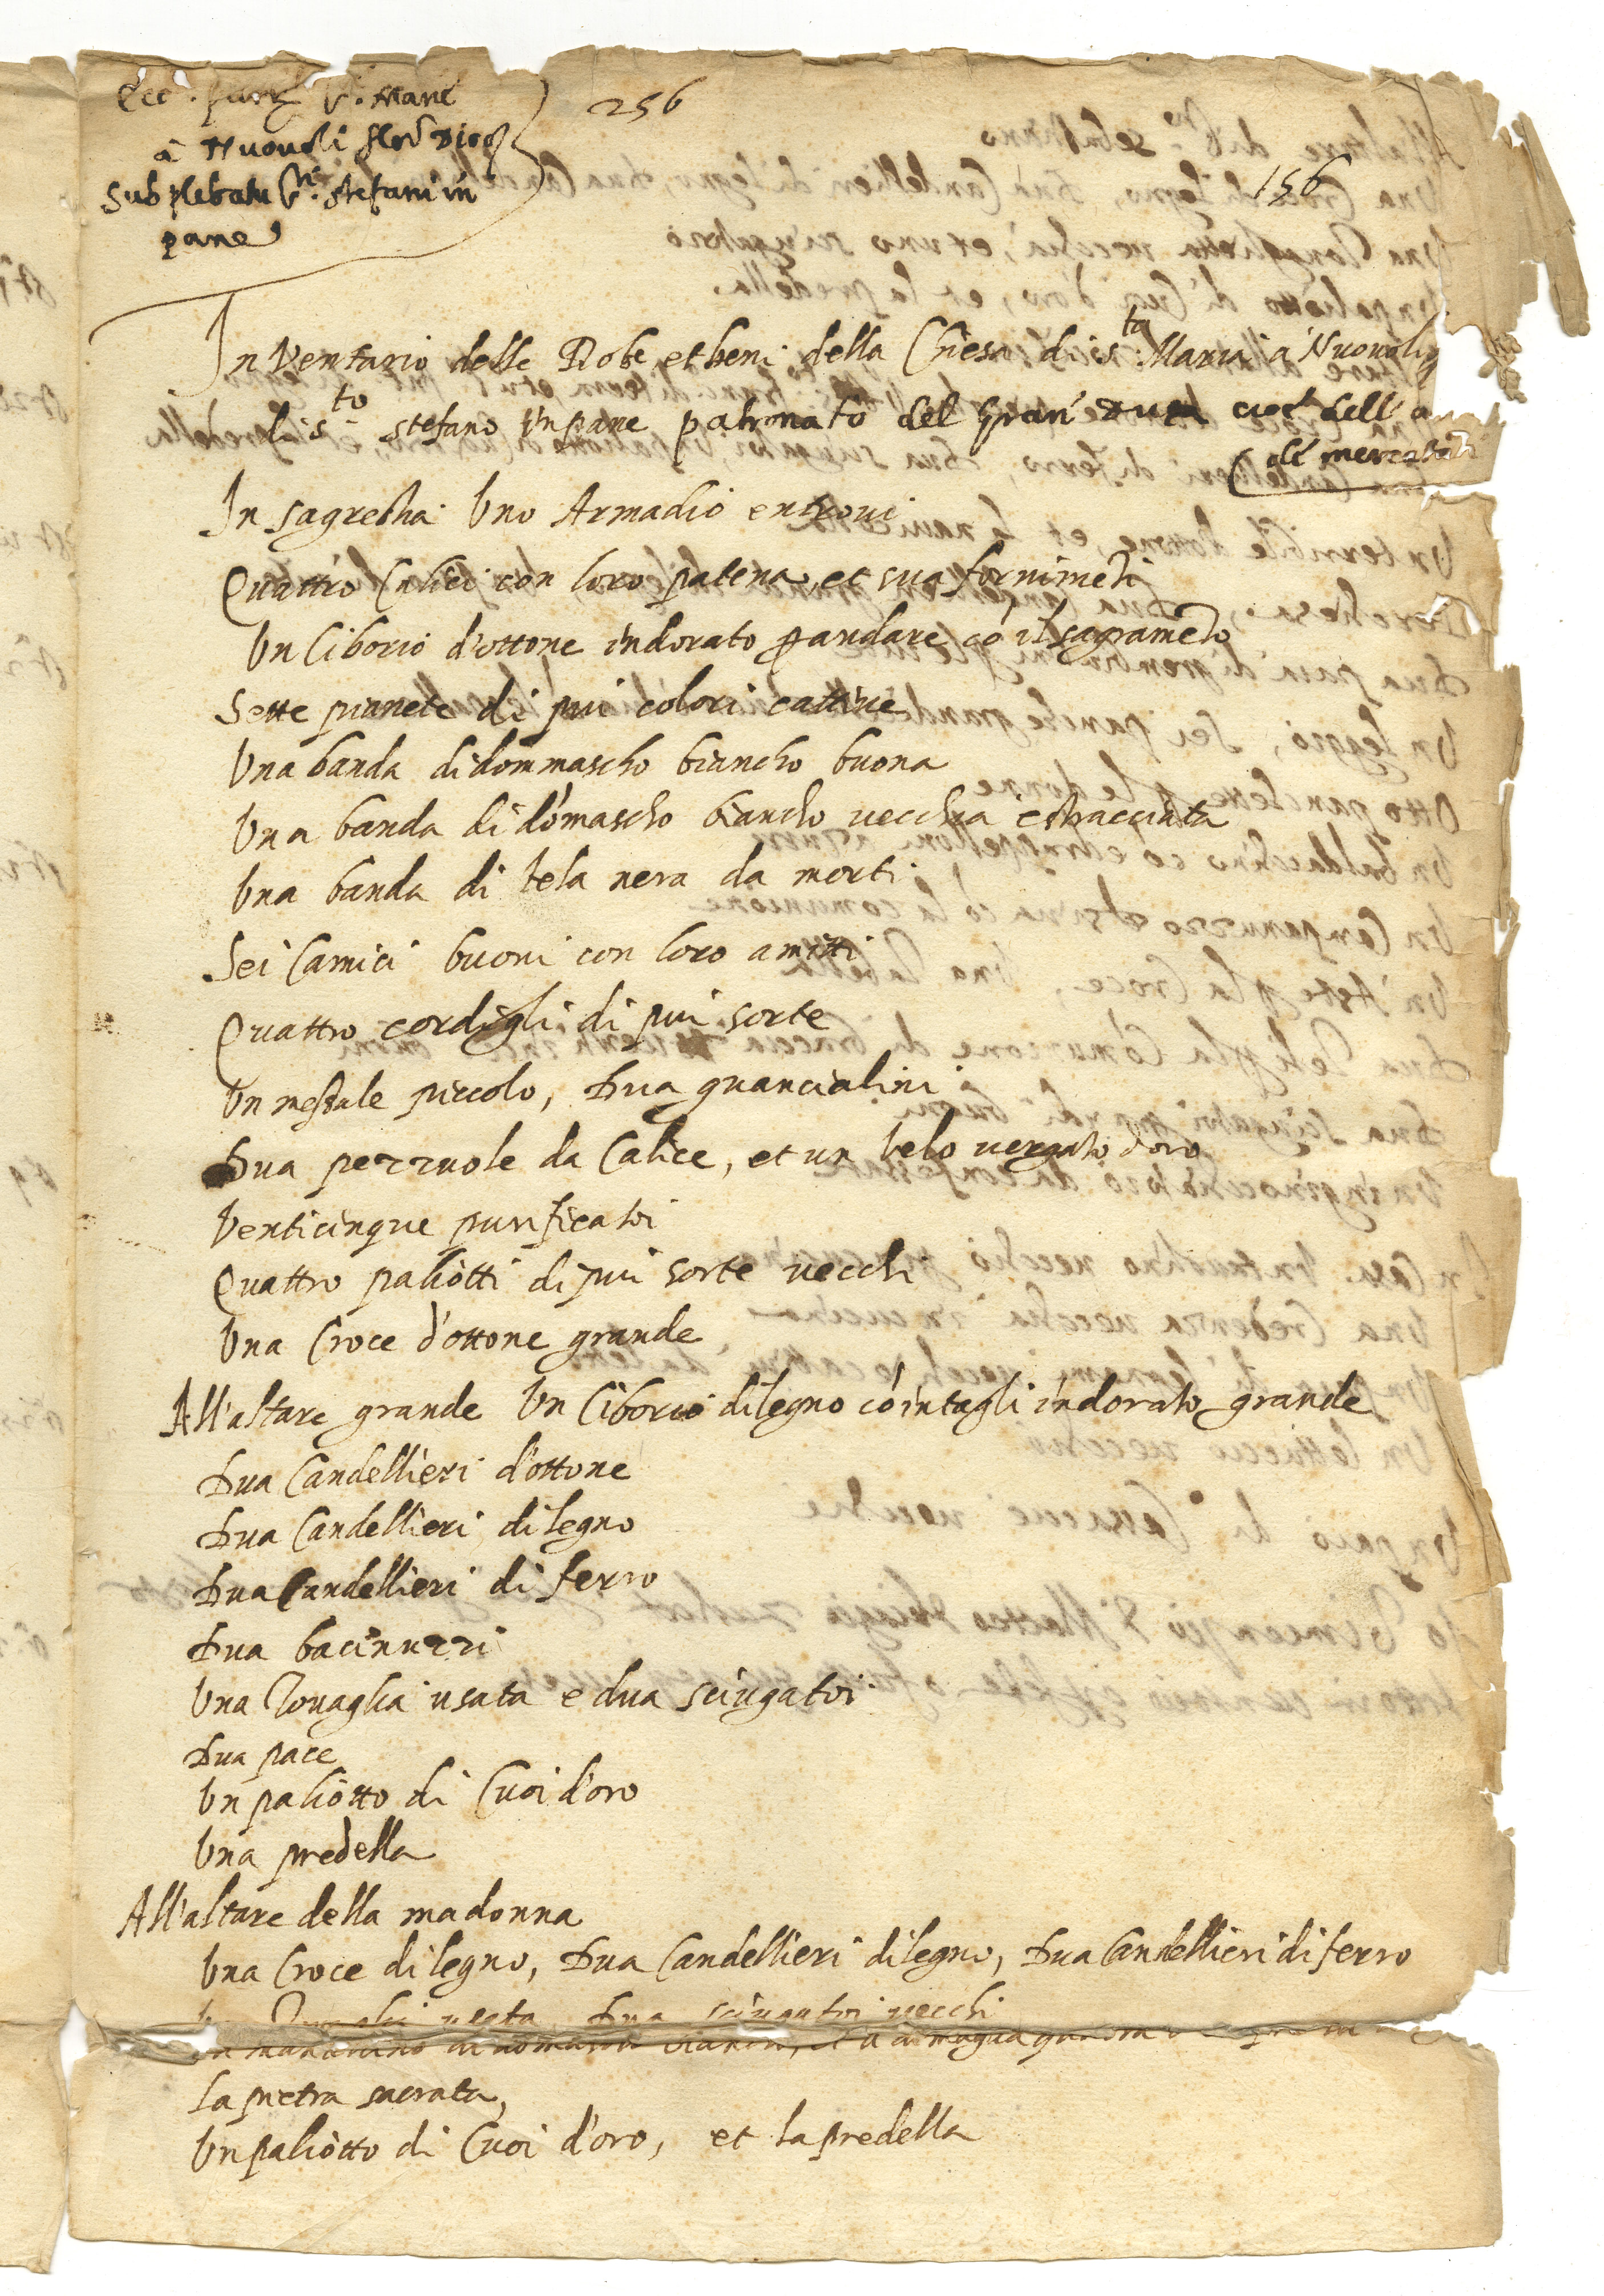 Ecc. S. Marie
à Nuovoli
sub plebatu S.ti Stefani in
pane
256
156
Inventario delle Robe, et beni della Chiesa di s.ta Maria à Nuovoli
di s.to stefano in pane patronato del Gran Duca cioè dell'a
di mercatant
In sagrestia Uno Armadio entrovi
Quattro Calici con loro patena, et sua fornimēti
Un Ciborio d'ottone indorato p andare cō il sagramēto
Sette pianete di piu colori cattive
Una banda di dommascho biancho buona
Una banda di dōmascho biancho vecchia e stracciata
Una banda di tela nera da morti
Sei Camici buoni con loro amitti
Quattro cordigli di piu sorte
Un messale piccolo, Dua guancialini
Dua pezzuole da Calice, et un velo vergato d'oro
Venticinque purificatoi
Quattro paliotti di piu sorte vecchi
Una Croce d'ottone grande
All'altare grande Un Ciborio di legno cō intagli indorato grande
Dua Candellieri d'ottone
Dua Candellieri di legno
Dua Candellieri di ferro
Dua bacinuzzi
Una Tovaglia usata e dua sciugatoi
Dua pace
Un paliotto di Cuoi d'oro
Una predella
All'altare della madonna
Una Croce di legno, Dua Candellieri di legno, Dua Candellieri di ferro
usata Dua sciugatoi vecchi
la pietra sacrata,
Un paliotto di Cuoi d'oro, et la predella